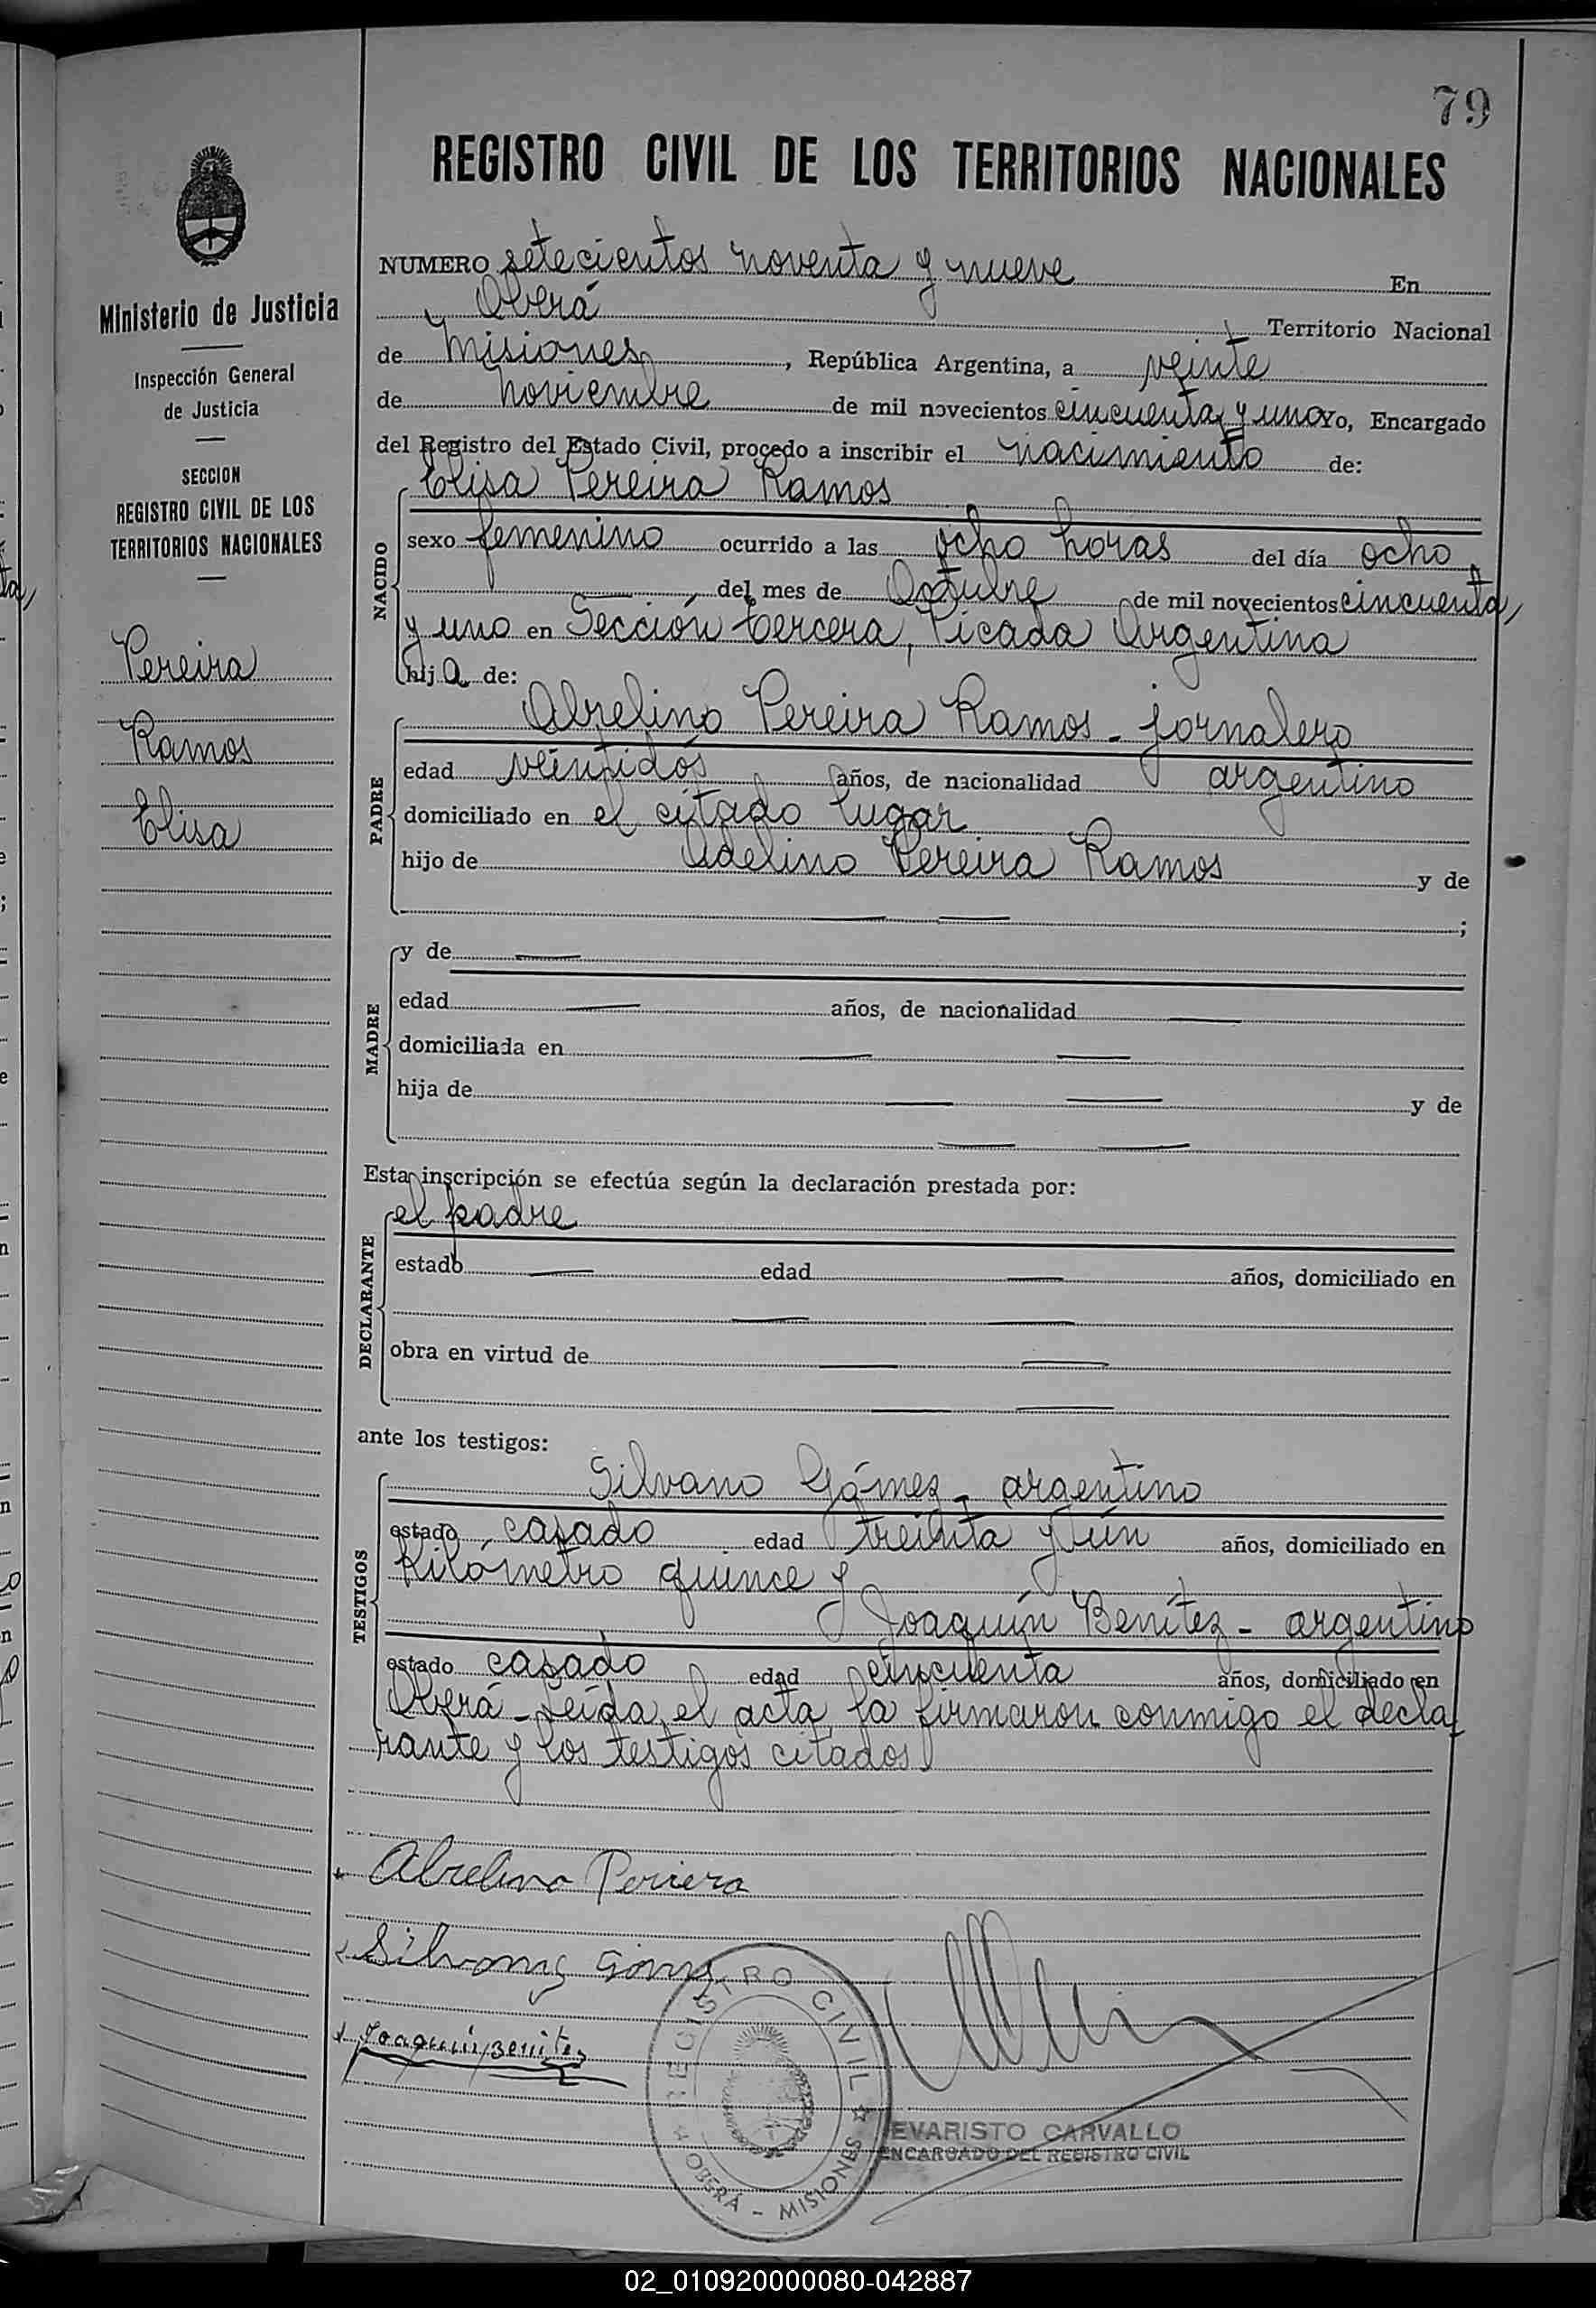 79
REGISTRO CIVIL DE LOS TERRITORIOS NACIONALES
Ministerio de Justicia
Inspección General
de Justicia
SECCION
REGISTRO CIVIL DE LOS
TERRITORIOS NACIONALES
Pereira
Ramos
Elisa
NUMERO setecientos noventa y nueve En
Oberá Territorio Nacional
de Misiones, República Argentina, a veinte
de noviembre de mil novecientos cincuenta y uno Yo, Encargado
del Registro del Estado Civil, procedo a inscribir el nacimiento de:
Elisa Pereira Ramos
NACIDO
sexo femenino ocurrido a las ocho horas del día ocho
del mes de Octubre de mil novecientos cincuenta
y uno en Sección tercera, Picada Argentina
hija de:
Abrelino Pereira Ramos - jornalero
PADRE
edad veintidós años, de nacionalidad argentino
domiciliado en el citado lugar
hijo de Adelino Pereira Ramos y de
;
MADRE
y de
edad años, de nacionalidad
domiciliada en
hija de y de
Esta inscripción se efectúa según la declaración prestada por:
el padre
DECLARANTE
estado edad años, domiciliado en
obra en virtud de
ante los testigos:
TESTIGOS
Silvano Gómez - argentino
estado casado edad treinta y ún años, domiciliado en
Kilómetro quince y
Joaquín Benítez - argentino
estado casado edad cincuenta años, domiciliado en
Oberá - Leída el acta, la firmaron conmigo el decla
rante y los testigos citados
Abrelino Perriera
Silvano Gomez
Joaquin Benitez
REGISTRO CIVIL
OBERÁ - MISIONES
EVARISTO CARVALLO
ENCARGADO DEL REGISTRO CIVIL
02_010920000080-042887